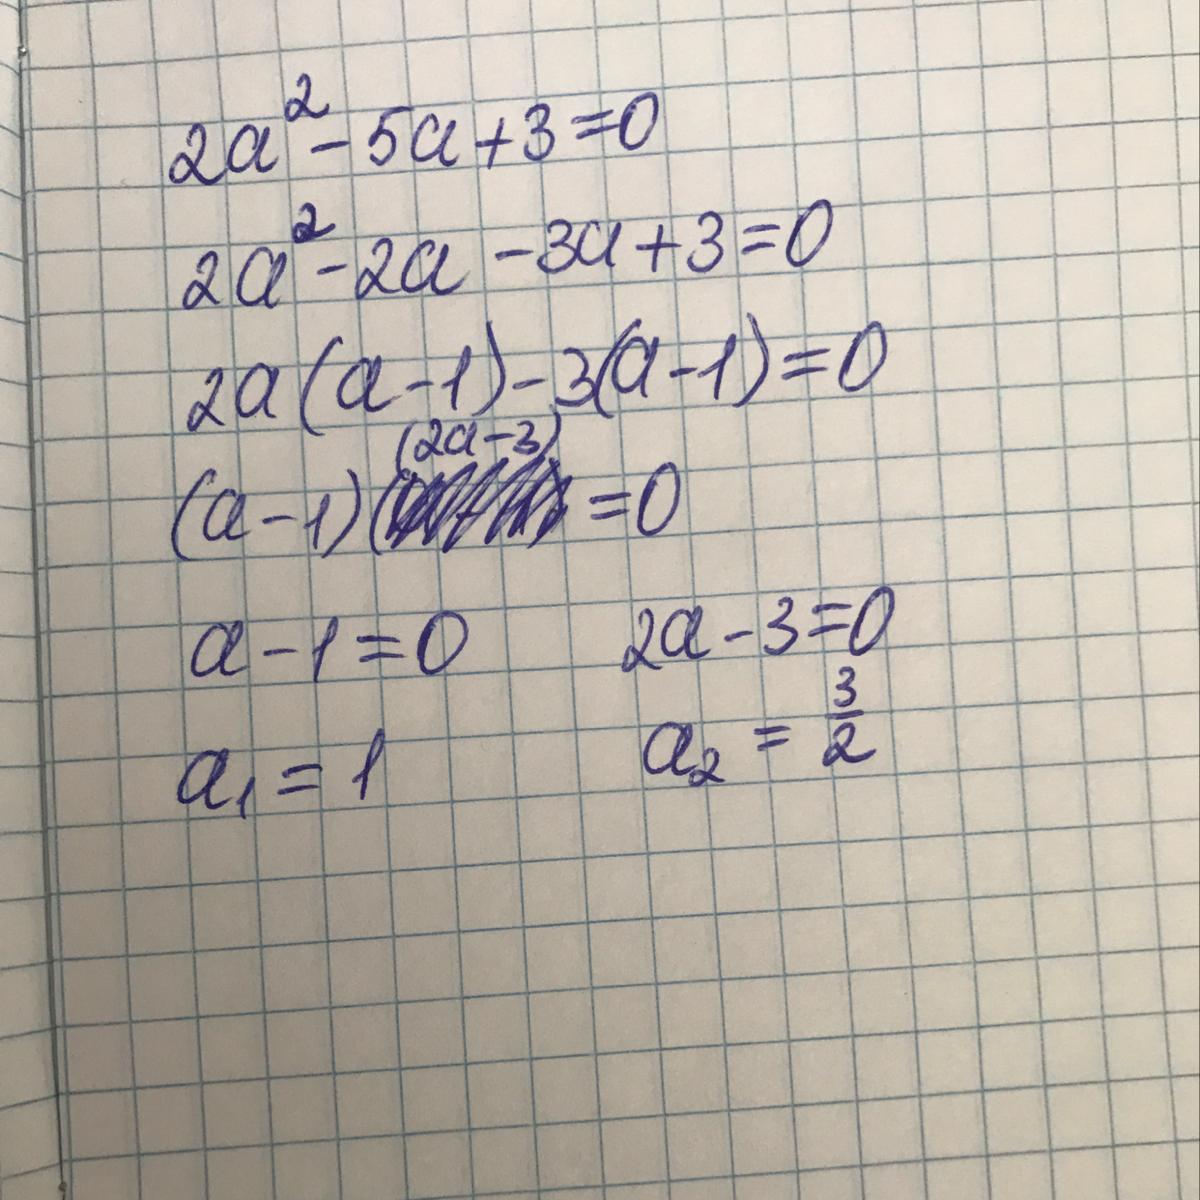 2a² - 5a + 3 = 0
2a² - 2a - 3a + 3 = 0
2a(a - 1) - 3(a - 1) = 0
(2a - 3)
(a - 1)( = 0
a - 1 = 0 2a - 3 = 0
a₁ = 1 a₂ = 3/2